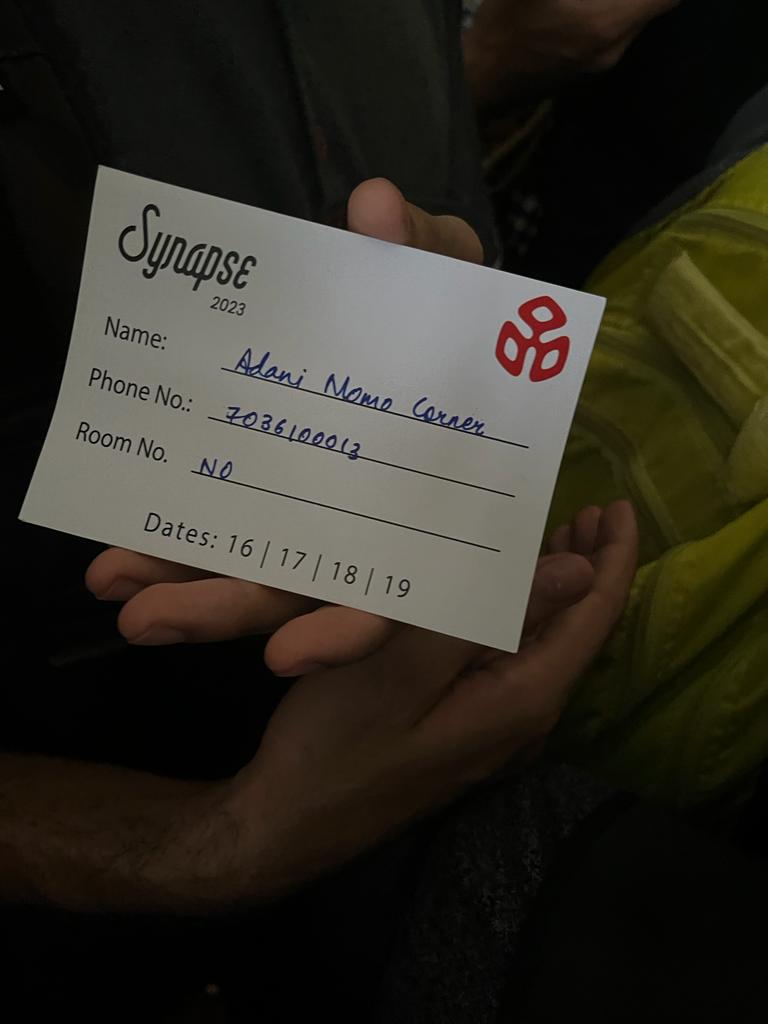 Synapse
2023
Name: Adani Momo Corner
Phone No.: 7036100013
Room No. NO
Dates: 16 | 17 | 18 | 19